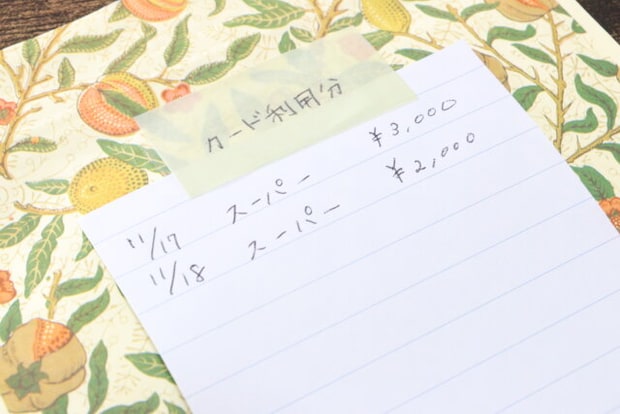 カード利用分
11/17 スーパー ¥3,000
11/18 スーパー ¥2,000